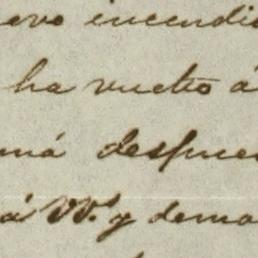 evo incendio
ha vuelto á
má despues
á VV.s y dema